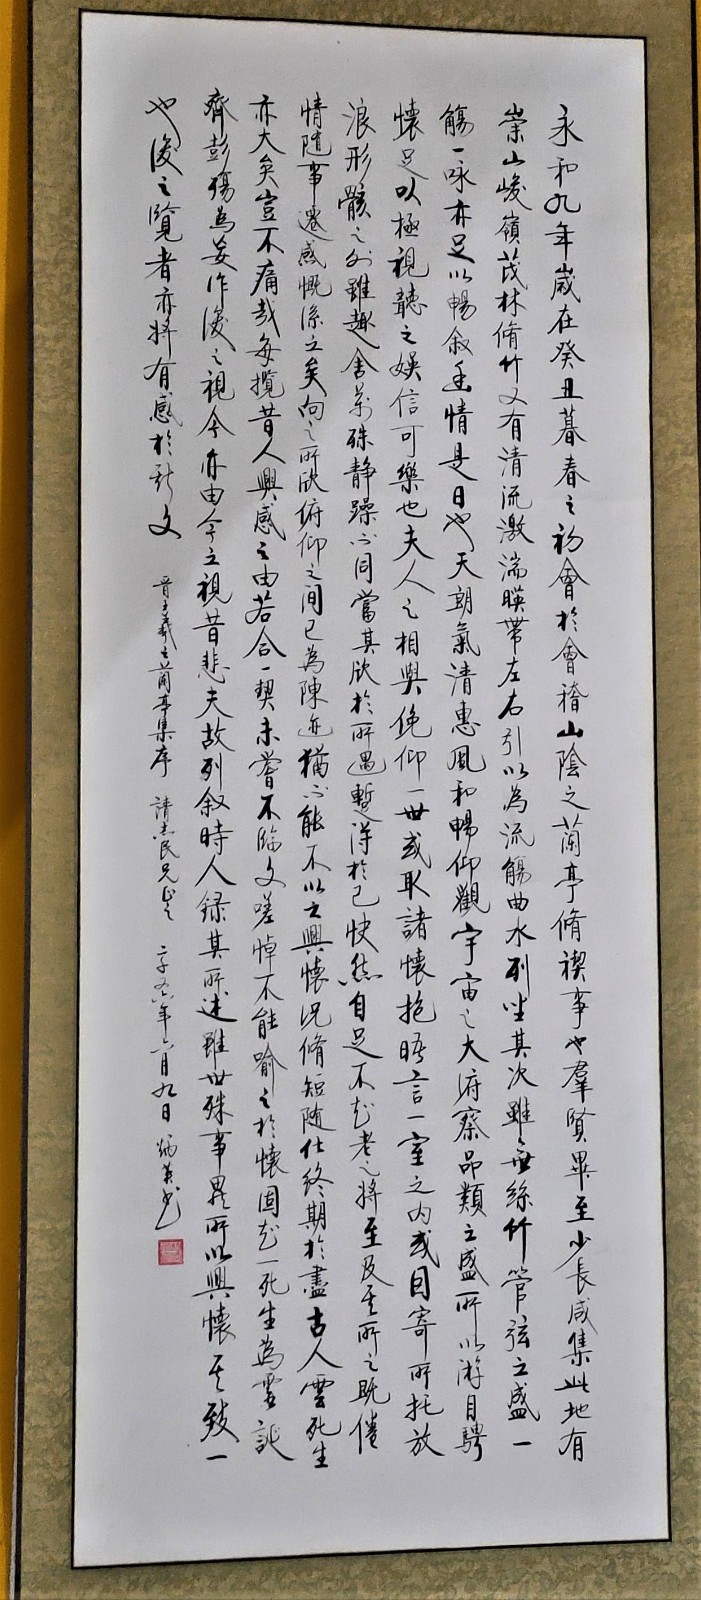 永和九年歲在癸丑暮春之初會於會稽山陰之蘭亭脩禊事也羣賢畢至少長咸集此地有
崇山峻嶺茂林脩竹又有清流激湍暎帶左右引以為流觴曲水列坐其次雖無絲竹管弦之盛一
觴一咏亦足以暢叙幽情是日也天朗氣清惠風和暢仰觀宇宙之大府察品類之盛所以游目騁
懷足以極視聽之娛信可樂也夫人之相與俛仰一世或取諸懷抱晤言一室之內或因寄所托放
浪形骸之外雖趣舍萬殊静躁不同當其欣於所遇蹔得於己快然自足不知老之將至及其所之既倦
情隨事遷感慨係之矣向之所欣俯仰之間已為陳迹猶不能不以之興懷況脩短隨化終期於盡古人雲死生
亦大矣豈不痛哉每攬昔人興感之由若合一契未嘗不臨文嗟悼不能喻之於懷固知一死生為虛誕
齊彭殤為妄作後之視今亦由今之視昔悲夫故列叙時人録其所述雖世殊事異所以興懷其致一
也後之覽者亦將有感於斯文
晉王羲之蘭亭集序 請志民兄正之 年六月九日 炳英书